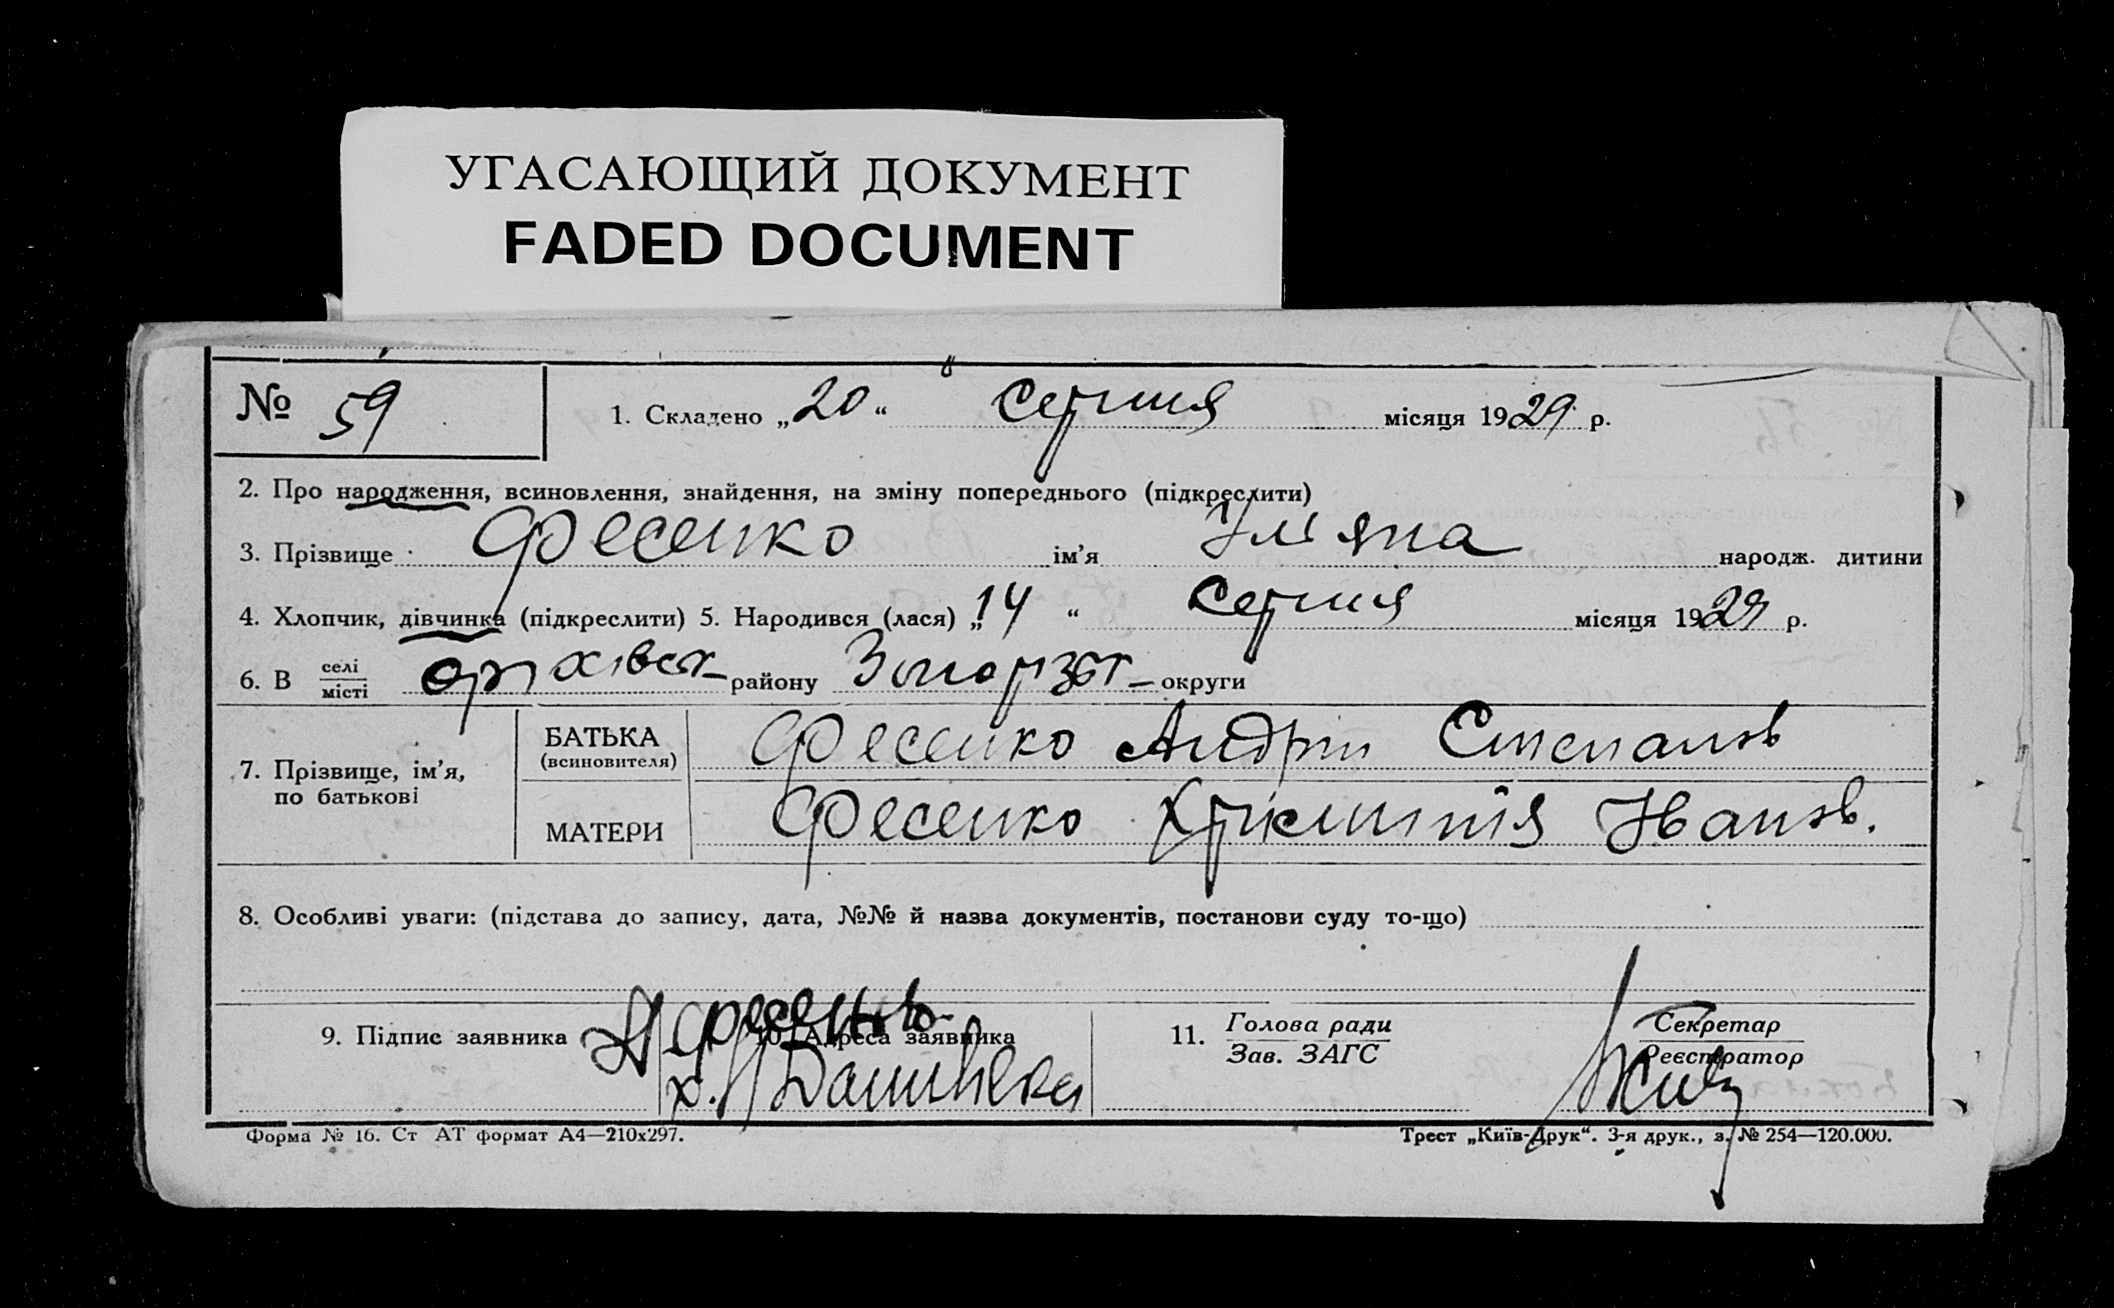 УГАСАЮЩИЙ ДОКУМЕНТ
FADED DOCUMENT
№ 59
1. Складено „20“ серпня місяця 1929 р.
2. Про народження, всиновлення, знайдення, на зміну попереднього (підкреслити)
3. Прізвище Фесенко ім’я Уляна народж. дитини
4. Хлопчик, дівчинка (підкреслити) 5. Народився (лася) „14“ серпня місяця 1929 р.
6. В селі місті району округи
7. Прізвище, ім’я, по батькові
БАТЬКА (всиновителя) Фесенко Андрій Степанов
МАТЕРИ Фесенко Христитія Іванов.
8. Особливі уваги: (підстава до запису, дата, №№ й назва документів, постанови суду то-що)
9. Підпис заявника
10. Адреса заявника х. Н Данилівка
11. Голова ради Зав. ЗАГС
Секретар Реєстратор
Форма № 16. Ст АТ формат А4—210х297.
Трест „Київ-Друк“. 3-я друк., з. № 254—120.000.